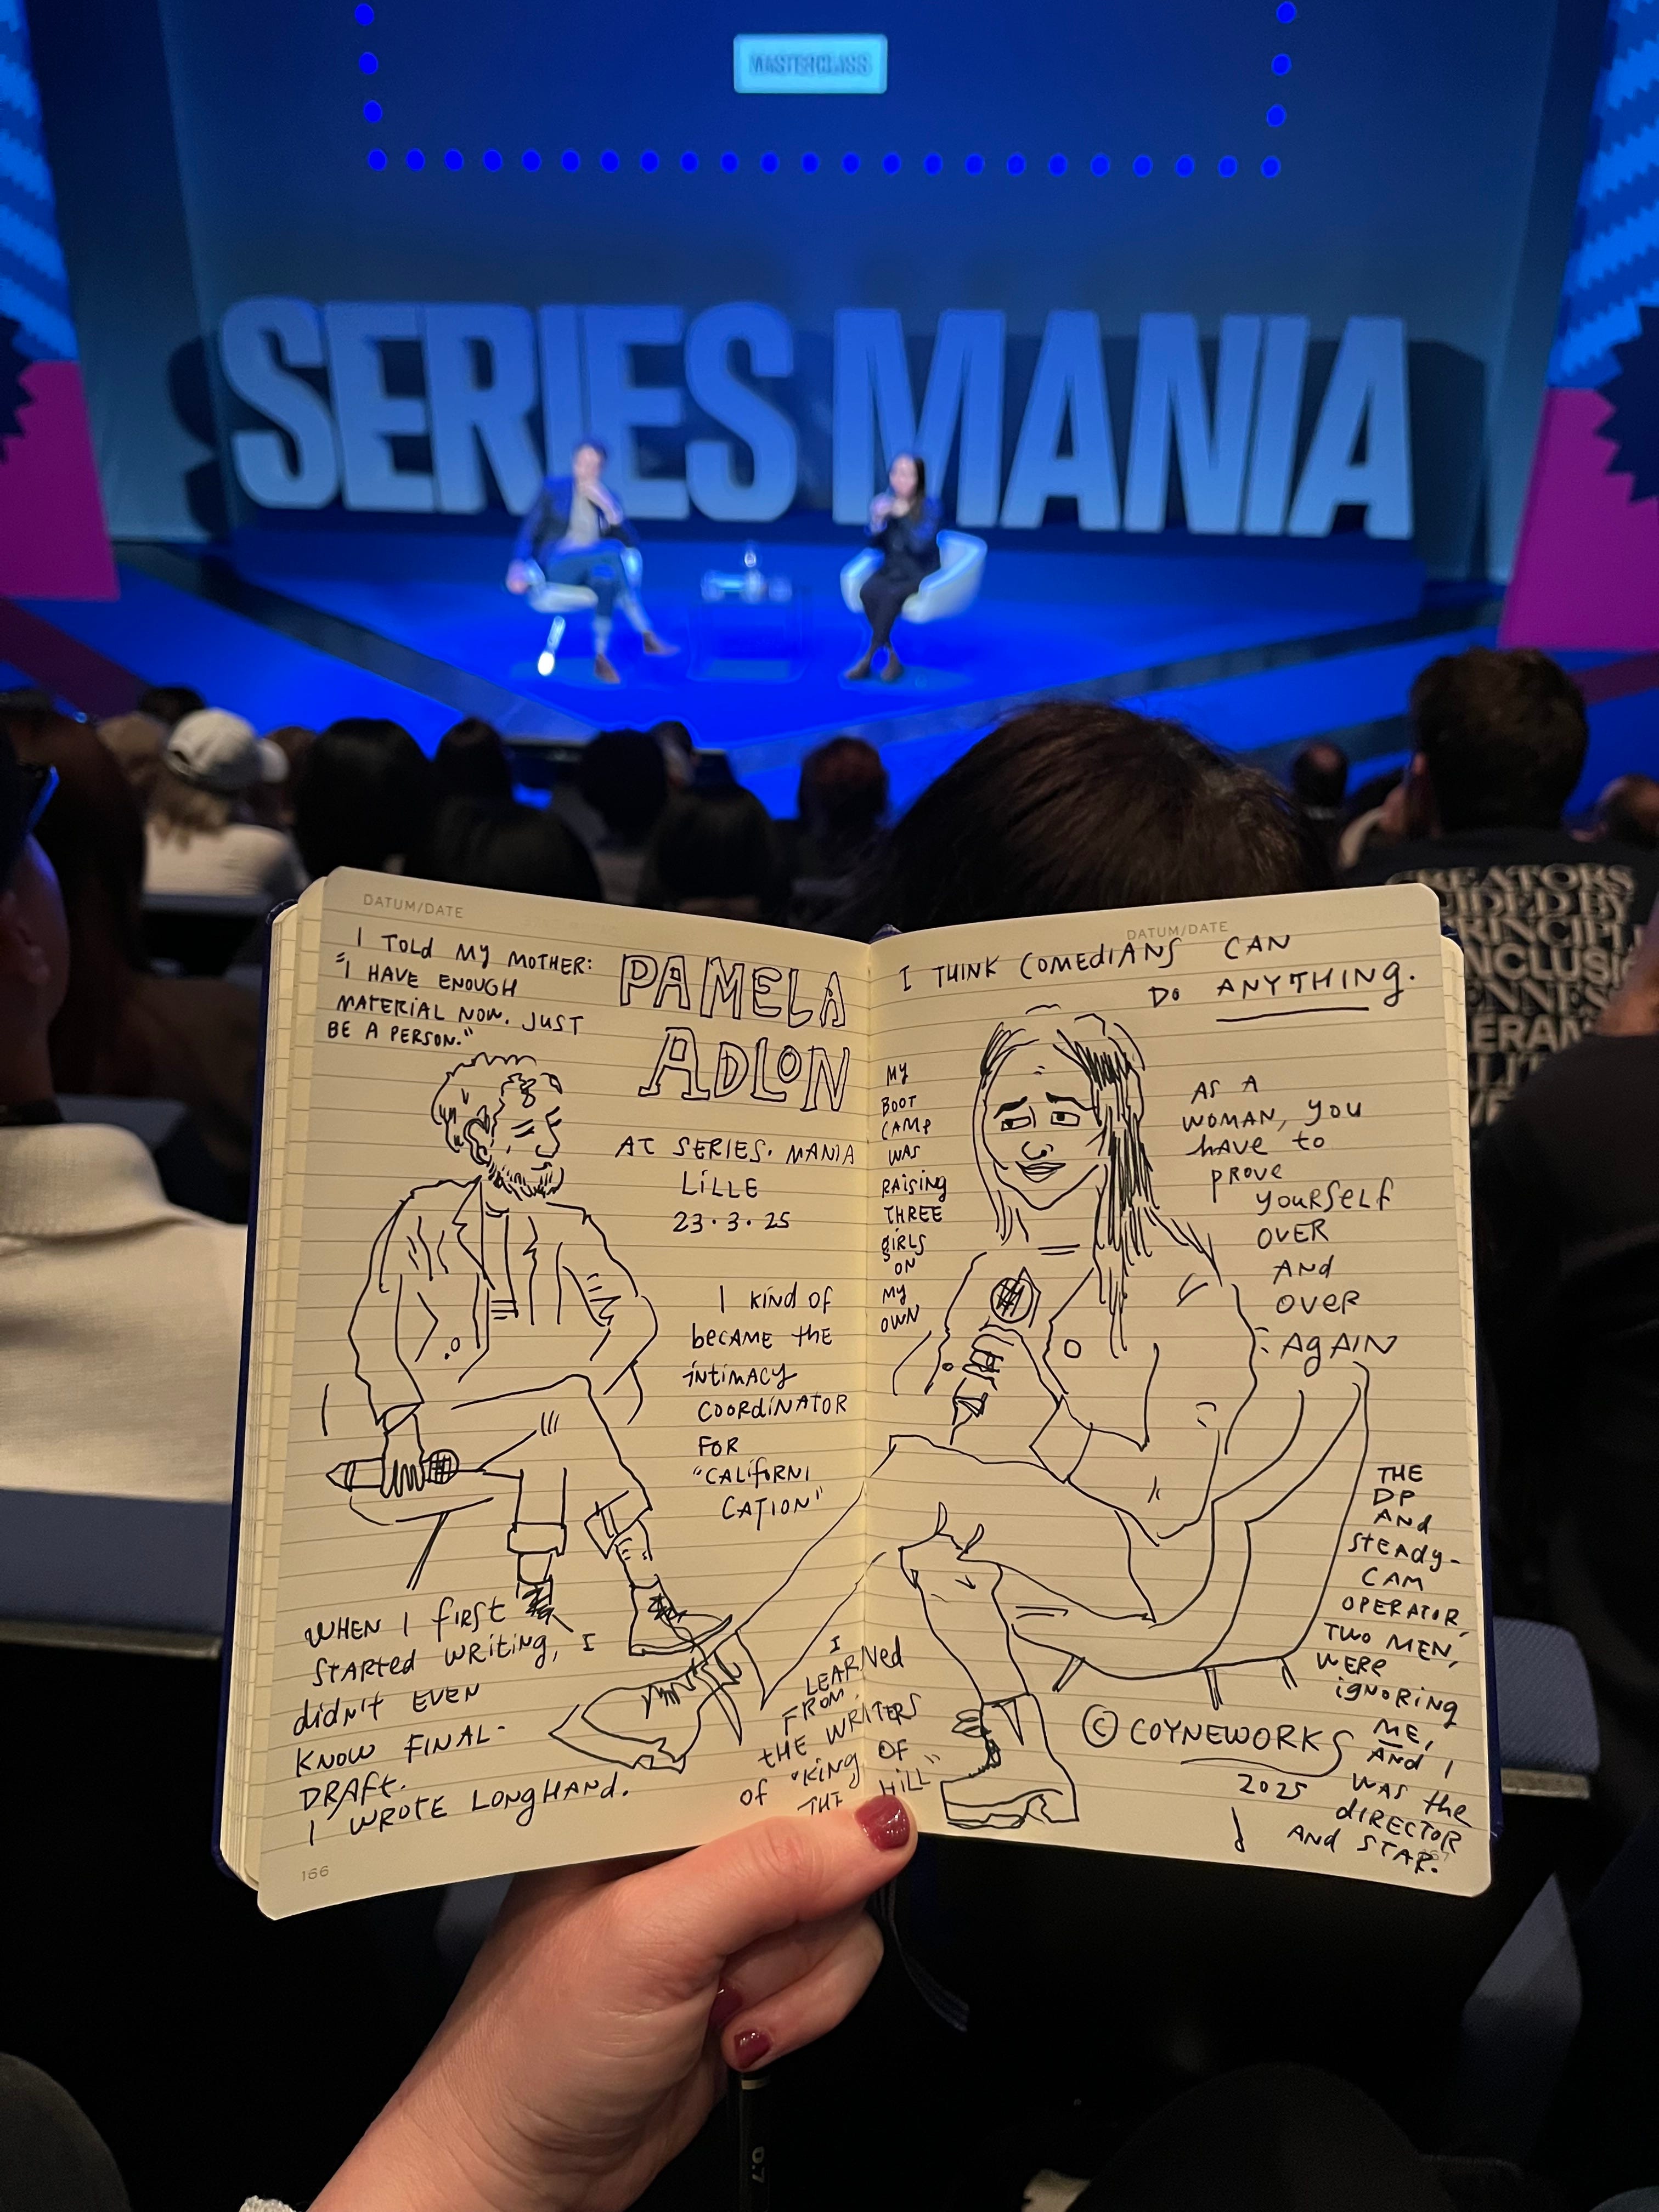 MASTERCLASS
SERIES MANIA
DATUM/DATE
I TOLD MY MOTHER:
"I HAVE ENOUGH
MATERIAL NOW. JUST
BE A PERSON."
PAMELA
ADLON
AT SERIES. MANIA
LiLLE
23.3.25
I KIND OF
became the
intimacy
COORDINATOR
FOR
"CALIFORNI
CATION"
WHEN I first
STARTED WRITING, I
didn't EVEN
KNOW FINAL-
DRAFT.
I WROTE LONGHAND.
I
LEARNed
FROM
tHE WRITERS
OF "KING OF
THE HILL"
166
DATUM/DATE
I THINK COMEDIANS CAN
DO ANYTHING.
MY
BOOT
CAMP
WAS
RAISING
THREE
GIRLS
ON
MY
OWN
AS A
WOMAN, you
have to
prove
yourself
OVER
AND
OVER
AGAIN
THE
DP
AND
STEADY-
CAM
OPERATOR,
TWO MEN,
WERE
iGNORING
ME,
AND I
WAS the
diRECTOR
AND STAR.
© COYNEWORKS
2025
CREATORS
GUIDED BY
PRINCIPL
INCLUSI
0.7